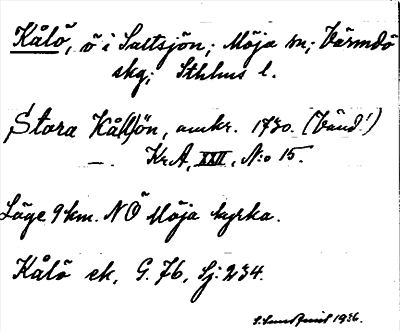 Kålö, ö i Saltsjön; Möja sn; Värmdö
skg; Sthlms l.
Stora Kålön, omkr. 1730. (Vänd!)
— Kr.A, XXII, N:o 15.
Läge 9 km. NÖ Möja kyrka.
Kålö ek, G. 76, Sj: 234.
1936.